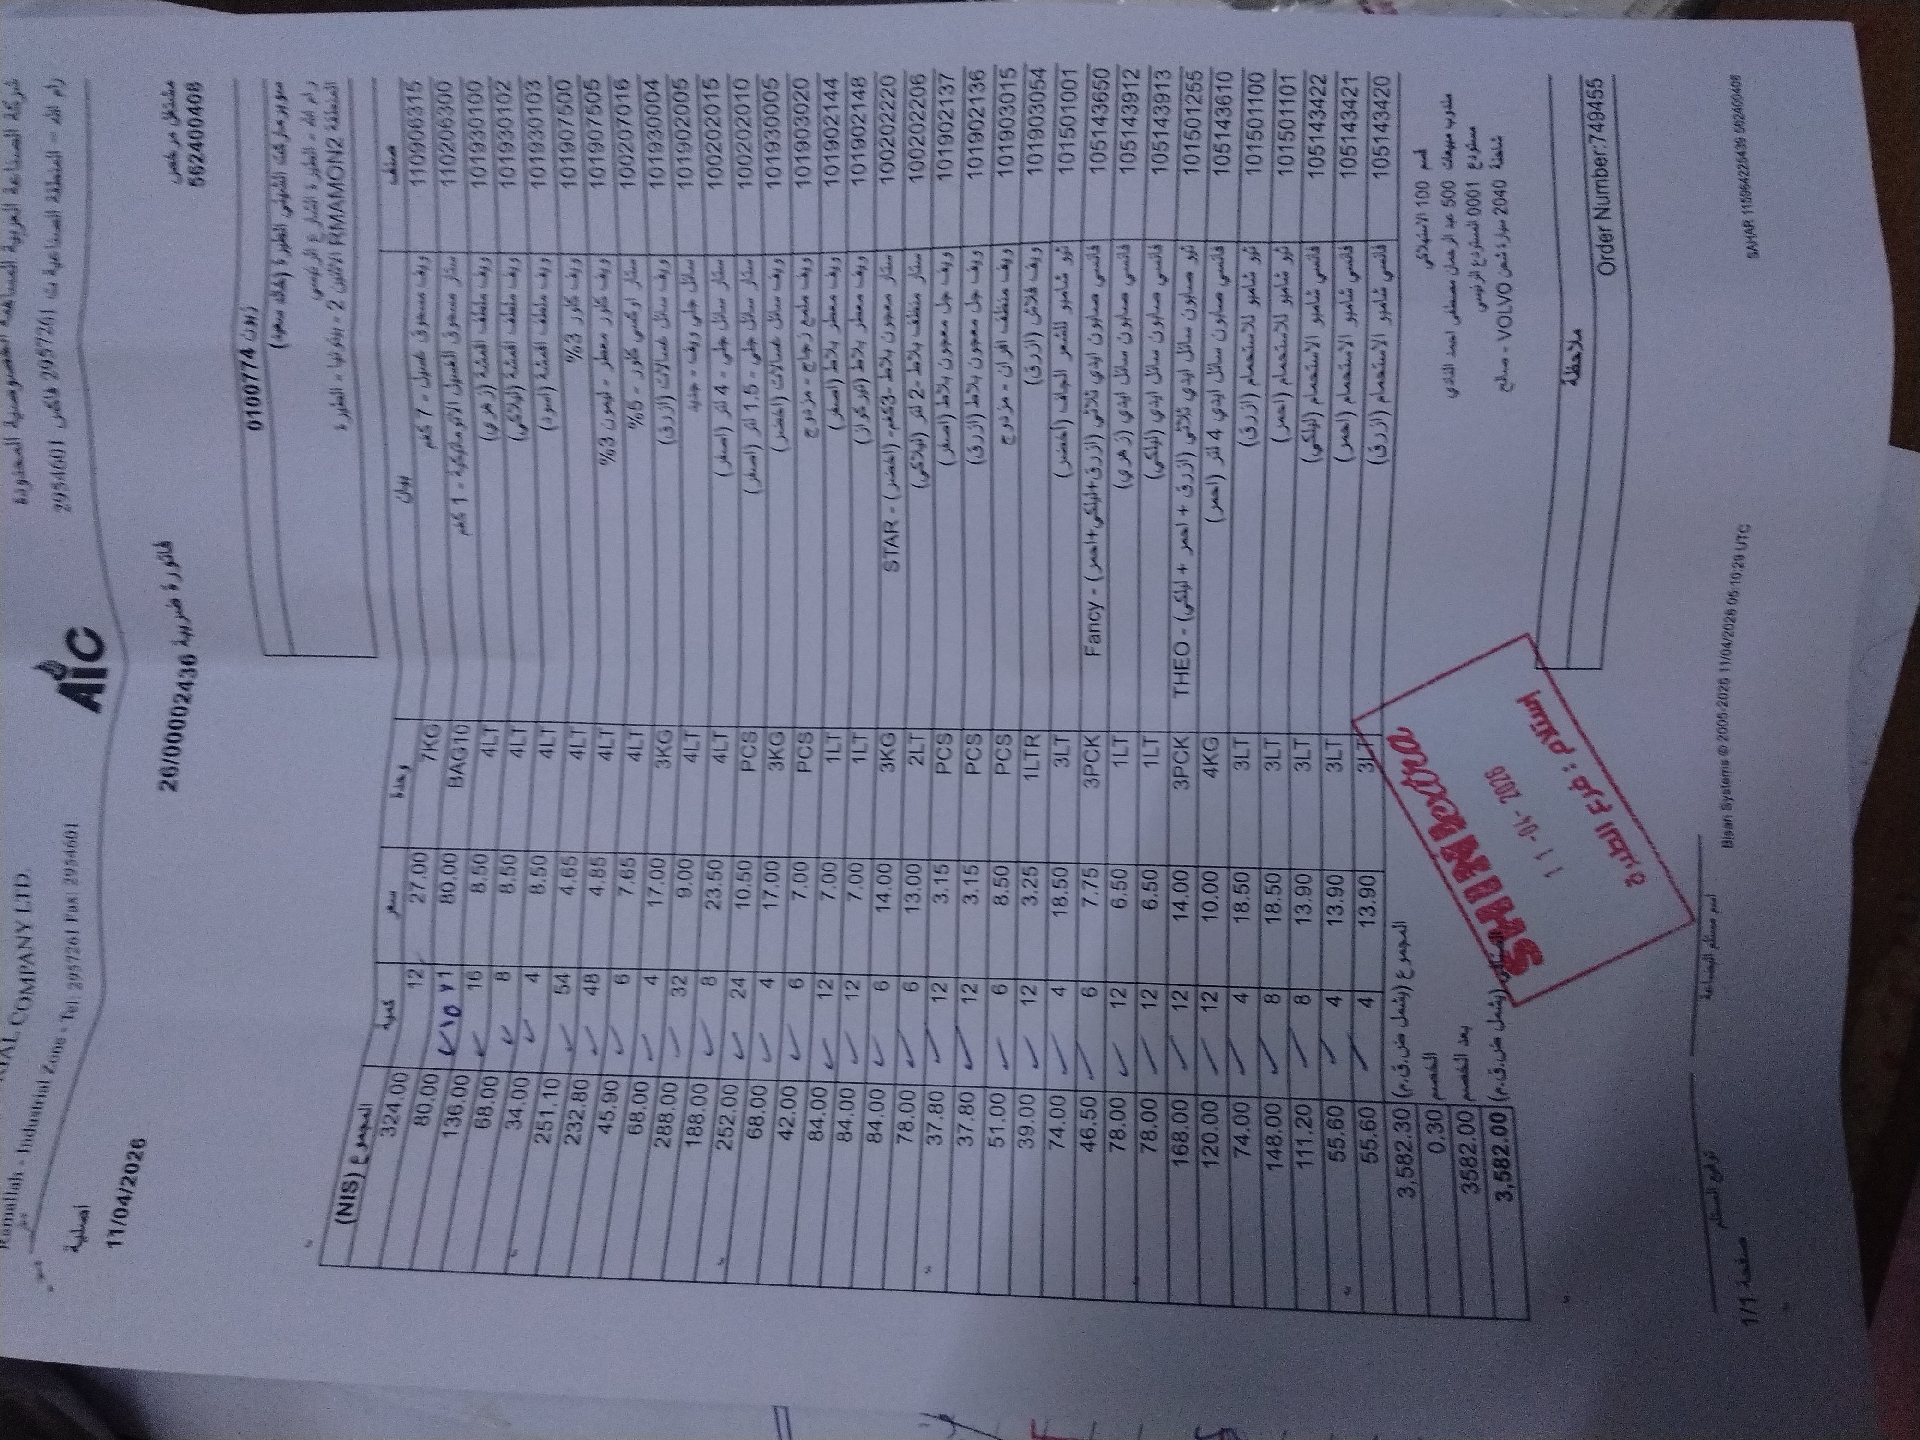 شركة الصناعة العربية المساهمة الخصوصية المحدودة
رام الله - المنطقة الصناعية ت 2957261 فاكس 2954601
AIC
COMPANY LTD.
Ramallah - Industrial Zone - Tel: 2957261 Fax 2954601
اصلية
11/04/2026
فاتورة ضريبية 26/00002436
مشتغل مرخص
562400408
زبون 0100774
سوبرماركت الشوني الطيرة
رام الله - الطيرة الشارع الرئيسي
المنطقة RMAMON2 الاثنين 2 - بيتونيا - الطيرة
صنف بيان وحدة سعر كمية المجموع (NIS)
110906315 ويف مسحوق غسيل - 7 كغم 7KG 27.00 12 324.00
110206300 ستار مسحوق الغسيل الأوتوماتيكية - 1 كغم BAG10 80.00 1 80.00
101930100 ويف ملطف اقمشة (زهري) 4LT 8.50 16 136.00
101930102 ويف ملطف اقمشة (ليلاكي) 4LT 8.50 8 68.00
101930103 ويف ملطف اقمشة (اسود) 4LT 8.50 4 34.00
101907500 ويف كلور 3% 4LT 4.65 54 251.10
101907505 ويف كلور معطر - ليمون 3% 4LT 4.85 48 232.80
100207016 ستار اوكسي كلور - 5% 4LT 7.65 6 45.90
101930004 ويف سائل غسالات (ازرق) 3KG 17.00 4 68.00
101902005 سائل جلي ويف - جديد 4LT 9.00 32 288.00
100202015 ستار سائل جلي - 4 لتر (اصفر) 4LT 23.50 8 188.00
100202010 ستار سائل جلي - 1.5 لتر (اصفر) PCS 10.50 24 252.00
101930005 ويف سائل غسالات (اخضر) 3KG 17.00 4 68.00
101903020 ويف ملمع زجاج - مزدوج PCS 7.00 6 42.00
101902144 ويف معطر بلاط (اصفر) 1LT 7.00 12 84.00
101902148 ويف معطر بلاط (تركواز) 1LT 7.00 12 84.00
100202220 ستار معجون بلاط -3كغم- (اخضر) - STAR 3KG 14.00 6 84.00
100202206 ستار منظف بلاط - 2 لتر (ليلاكي) 2LT 13.00 6 78.00
101902137 ويف جل معجون بلاط (اصفر) PCS 3.15 12 37.80
101902136 ويف جل معجون بلاط (ازرق) PCS 3.15 12 37.80
101903015 ويف منظف افران - مزدوج PCS 8.50 6 51.00
101903054 ويف فلاش (ازرق) 1LTR 3.25 12 39.00
101501001 ثيو شامبو للشعر الجاف (اخضر) 3LT 18.50 4 74.00
105143650 فانسي صابون ايدي ثلاثي (ازرق+ليلكي+احمر) - Fancy 3PCK 7.75 6 46.50
105143912 فانسي صابون سائل ايدي (زهري) 1LT 6.50 12 78.00
105143913 فانسي صابون سائل ايدي (ليلكي) 1LT 6.50 12 78.00
101501255 ثيو صابون سائل ايدي ثلاثي (ازرق + احمر + ليلكي) - THEO 3PCK 14.00 12 168.00
105143610 فانسي صابون سائل ايدي 4 لتر (احمر) 4KG 10.00 12 120.00
101501100 ثيو شامبو للاستحمام (ازرق) 3LT 18.50 4 74.00
101501101 ثيو شامبو للاستحمام (احمر) 3LT 18.50 8 148.00
105143422 فانسي شامبو الاستحمام (ليلكي) 3LT 13.90 8 111.20
105143421 فانسي شامبو الاستحمام (احمر) 3LT 13.90 4 55.60
105143420 فانسي شامبو الاستحمام (ازرق) 3LT 13.90 4 55.60
المجموع (يشمل ض.ق.م) 3,582.30
الخصم 0.30
بعد الخصم 3582.00
(يشمل ض.ق.م) 3,582.00
قسم 100 الاستهلاكي
مندوب مبيعات 500 عبد الرحمن مصطفى احمد النادي
مستودع 0001 المستودع الرئيسي
شاحنة 2040 سيارة شحن VOLVO - صالح
11-04-2026
استلام : فرع الطيرة
ملاحظة
Order Number:749455
اسم مستلم البضاعة
توقيع المستلم
SAHAR 115964225439 562400408
Bisan Systems © 2005-2025 11/04/2026 05:10:29 UTC
صفحة 1/1